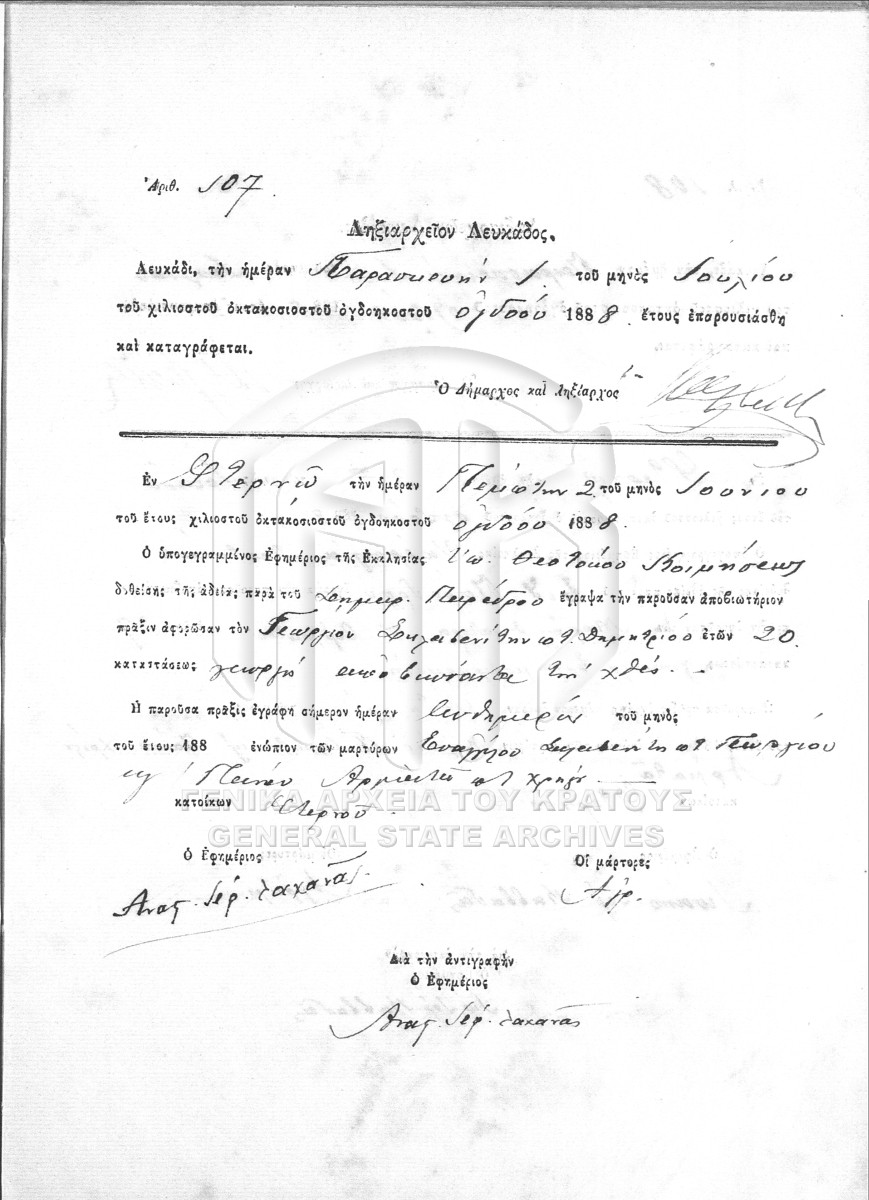 Ἀριθ. 107.
Ληξιαρχεῖον Λευκάδος.
Λευκάδι, τὴν ἡμέραν Παρασκευὴν 1 τοῦ μηνὸς Ιουλίου
τοῦ χιλιοστοῦ ὀκτακοσιοστοῦ ὀγδοηκοστοῦ ὀγδόου 1888. ἔτους ἐπαρουσιάσθη
καὶ καταγράφεται.
Ὁ Δήμαρχος καὶ Ληξίαρχος
Ἐν Φτερνῶ τὴν ἡμέραν Πέμπτην 2 τοῦ μηνὸς Ιουνίου
τοῦ ἔτους χιλιοστοῦ ὀκτακοσιοστοῦ ὀγδοηκοστοῦ ὀγδόου 1888.
Ὁ ὑπογεγραμμένος Ἐφημέριος τῆς Ἐκκλησίας Θεοτόκου Κοιμήσεως
δοθείσης τῆς ἀδείας παρὰ τοῦ Δημαρ. Παρέδρου ἔγραψα τὴν παροῦσαν ἀποβιωτήριον
πρᾶξιν ἀφορῶσαν τὸν Γεώργιον Σκλαβενίτην ποτ. Δημητρίου ἐτῶν 20.
καταστάσεως γεωργὸς ἀποβιώσαντα τὴν χθές.
Ἡ παροῦσα πρᾶξις ἐγράφη σήμερον ἡμέραν αὐθημερὸν τοῦ μηνὸς
τοῦ ἔτους 188 ἐνώπιον τῶν μαρτύρων Εὐαγγέλου Σκλαβενίτη ποτ Γεωργίου
Πάνου Αρματᾶ ποτ Χρήσ
κατοίκων Φτερνοῦ.
ΓΕΝΙΚΑ ΑΡΧΕΙΑ ΤΟΥ ΚΡΑΤΟΥΣ
GENERAL STATE ARCHIVES
Ὁ Ἐφημέριος Οἱ μάρτυρες
Αναστ. Ιερ. Λαχανᾶς. Αγρ.
Διὰ τὴν ἀντιγραφὴν
Ὁ Ἐφημέριος
Αναστ. Ιερ. Λαχανᾶς